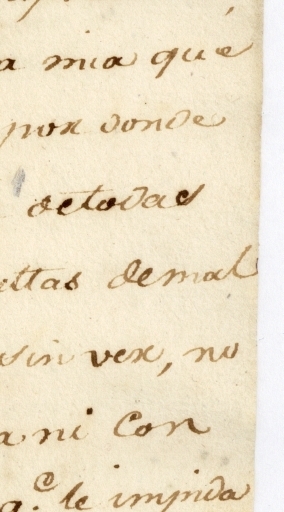 a mia que
por donde
detodas
ettas demal
sin ver, no
a ni con
q.e le impida